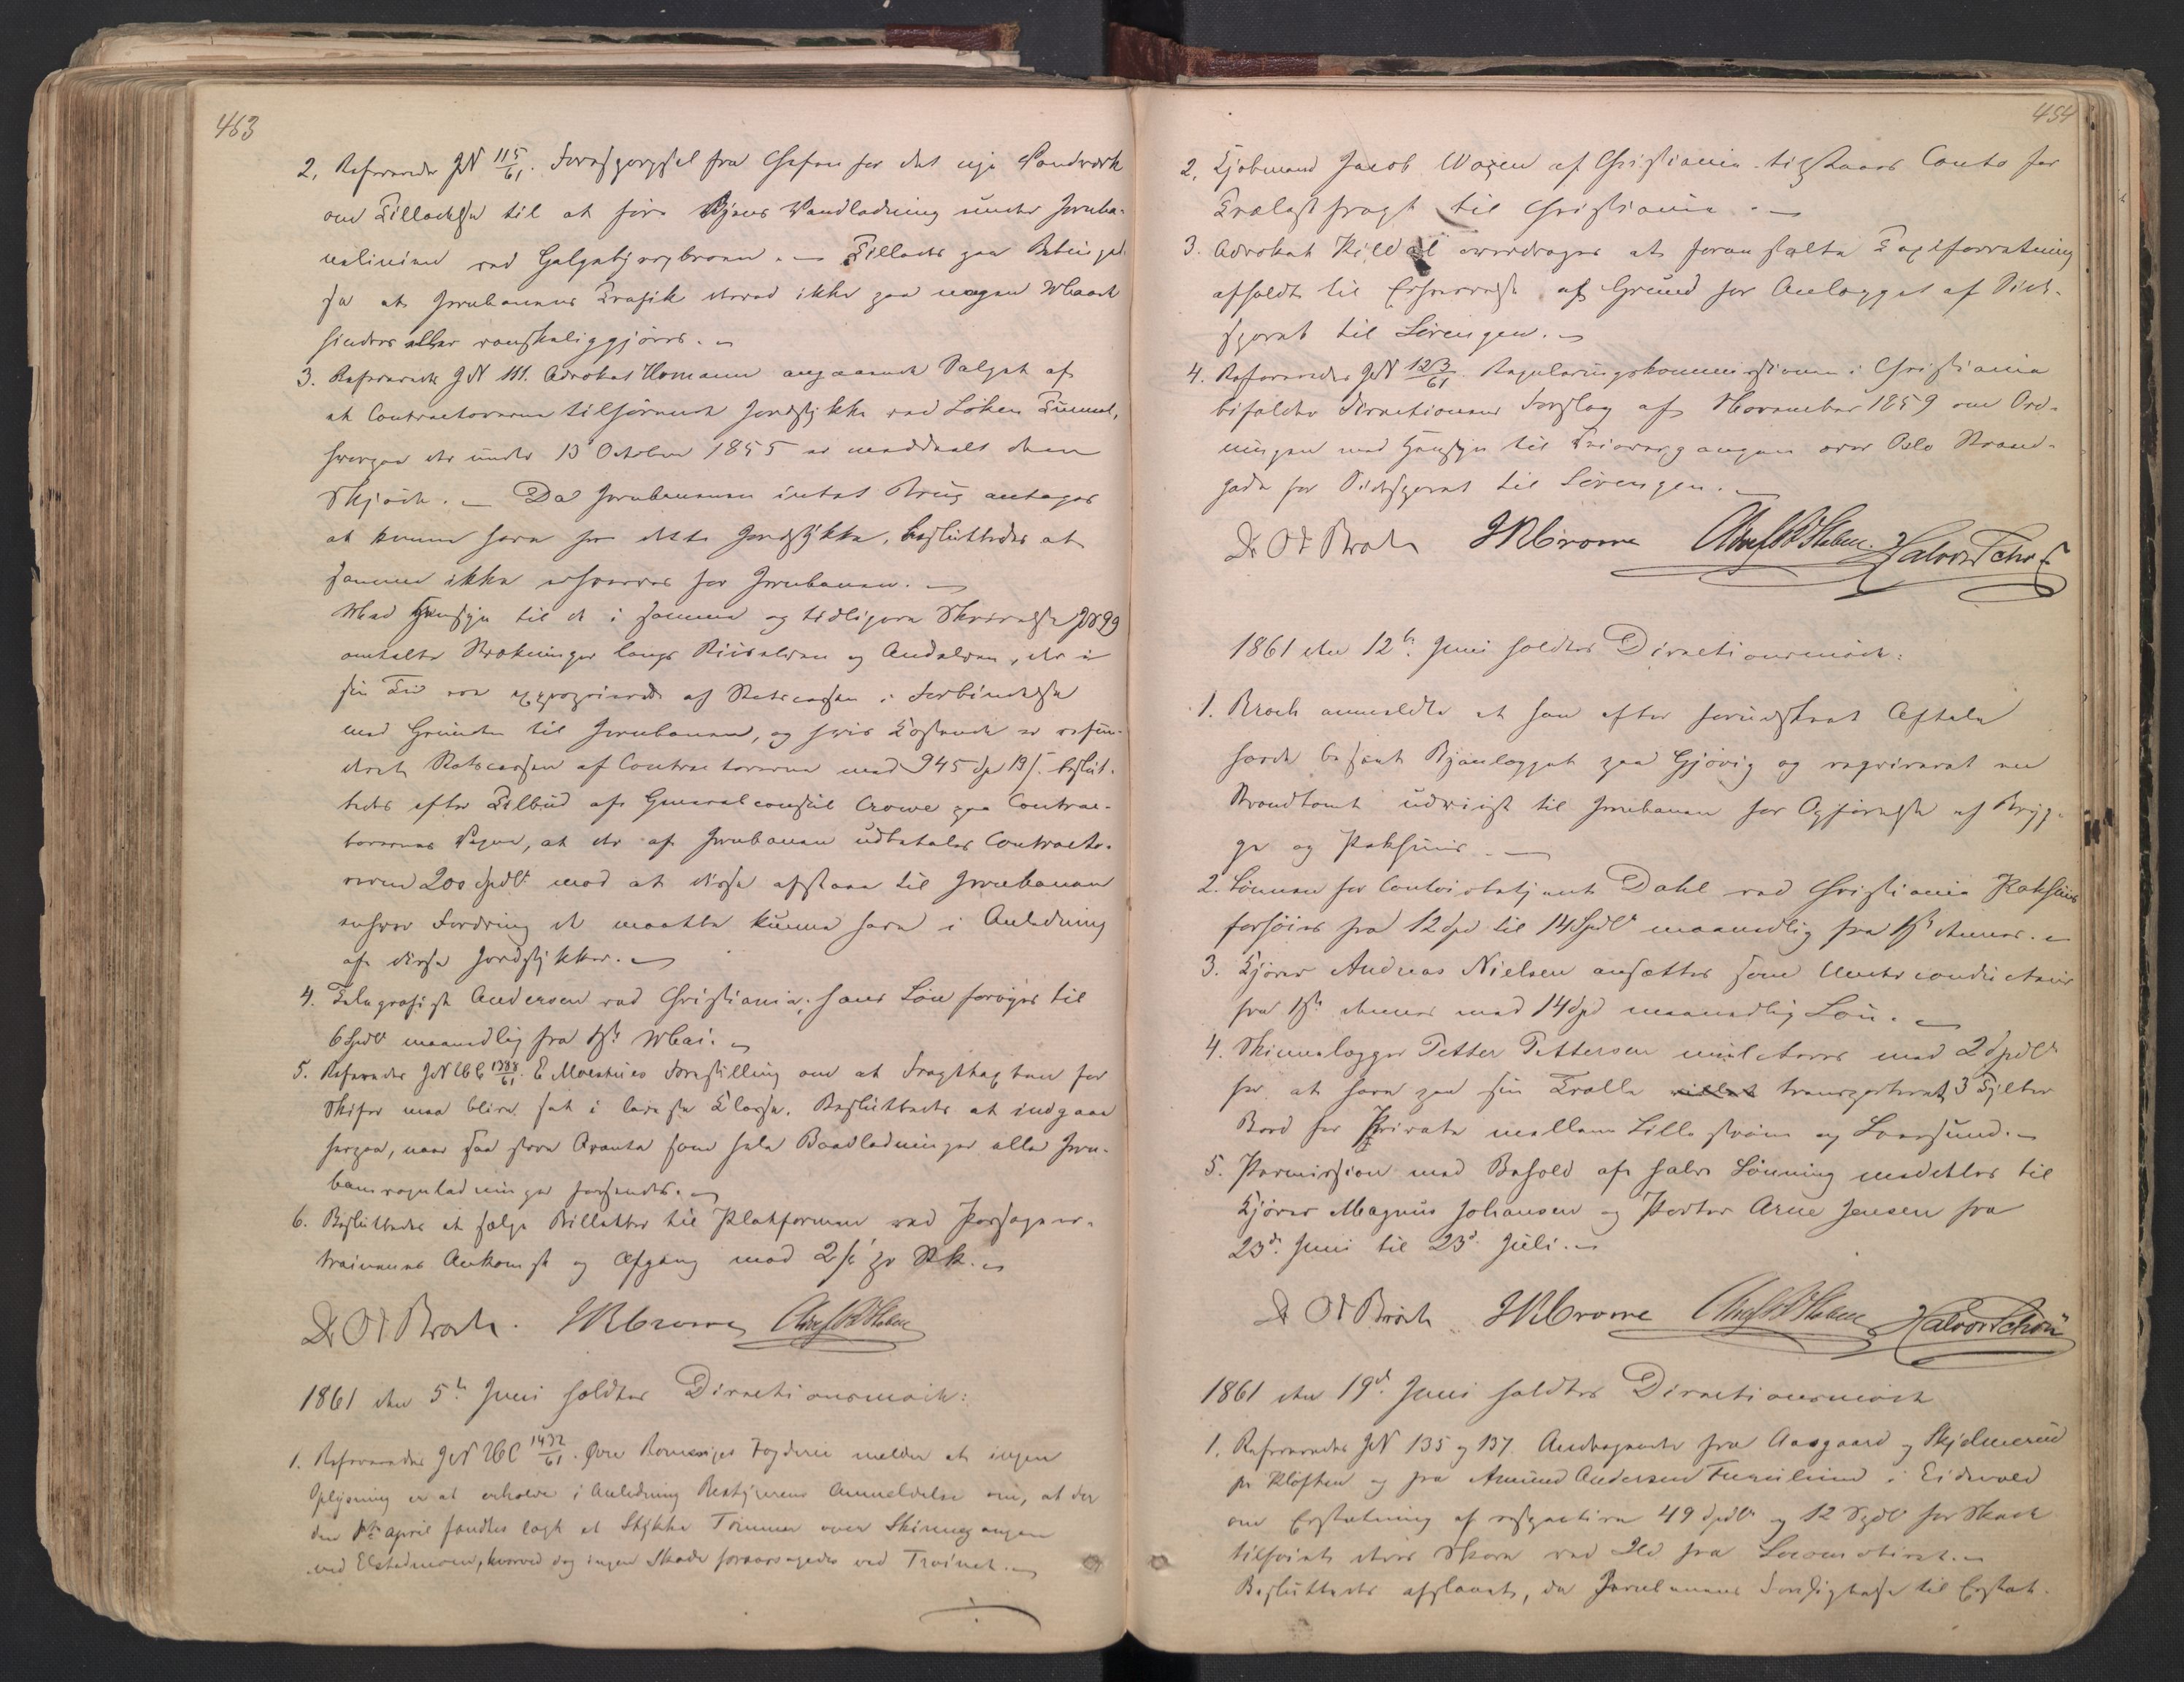 463
2. Refereredes JN 115/61. Forespørgsel fra Chefen for det nye Vandværk
om Tilladelse til at føre Byens Vandledning under Jernba-
nelinien ved Galgebjergbroen. — Tillades paa Betingel-
se at Jernbanens Trafik derved ikke paa nogen Maade
hindres eller vanskeliggjøres. —
3. Refererede JN 111. Advokat Homann angaaende Salget af
et Contractorerne tilhørende Jordstykke ved Løken Tunnel,
hvorpaa der under 13 October 1855 er meddeelt dem
Skjøde. — Da Jernbanen intet Brug antages
at kunne have for dette Jordstykke, besluttedes at
samme ikke erhverves for Jernbanen. —
Med Hensyn til de i samme og tidligere Skrivelse JN 99
omtalte Strækninger langs Riiselven og Andelven, der i
sin Tid var exproprierede af Statscassen i Forbindelse
med Grunden til Jernbanen, og hvis Kostende er refun-
deret Statscassen af Contractorerne med 945 Spd 19 s. beslut-
tedes efter Tilbud af Generalconsul Crowe paa Contrac-
torernes Vegne, at der af Jernbanen udbetales Contracto-
rerne 200 Spdlr mod at disse afstaae til Jernbanen
enhver Fordring de maatte kunne have i Anledning
af disse Jordstykker. —
4. Telegrafist Andersen ved Christiania; hans Løn forøges til
6 Spdlr maanedlig fra 1ste Mai. —
5. Refereredes JN 1388/61. E Morthues Forestilling om at Fragttaxten for
Skifer maa blive sat i laveste Classe. Besluttedes at indgaae
herpaa, naar saa store Qvanta som hele Baadladninger eller Jern-
banevognladninger forsendes. —
6. Besluttedes at sælge Billetter til Platformen ved Passager-
trainenes Ankomst og Afgang mod 2 s pr Stk. —
Dr O J Broch. J R Crowe
1861 den 5te Juni holdtes Directionsmøde:
1. Refereredes JN 1432/61. Øvre Romeriges Fogderie melder at ingen
Oplysning er at erholde i Anledning Bestyrerens Anmeldelse om, at der
den 1ste April fandtes lagt et Stykke Tømmer over Skinnegangen
ved Elstadmoen, hvorved dog ingen Skade foraarsagedes ved Trainet. —
454
2. Kjøbmand Jacob Wogen af Christiania tilstaaes Conto for
Trælastfragt til Christiania. —
3. Advokat Kildal overdrages at foranstalte Taxtforretning
afholdt til Erhvervelse af Grund for Anlægget af Side-
sporet til Sørengen. —
4. Refereredes JN 123/61. Reguleringskommissionen i Christiania
bifalder Directionens Forslag af November 1859 om Ord-
ningen med Hensyn til Veiovergangen over Oslo Strand-
gade for Sidesporet til Sørengen. —
Dr O J Broch J R Crowe Halvor Schou
1861 den 12te Juni holdtes Directionsmøde:
1. Broch anmeldte at han efter forudskeet Aftale
havde besøgt Byanlægget paa Gjøvig og reqvireret en
Strandtomt udviist til Jernbanen for Opførelse af Bryg-
ge og Pakhuus. —
2. Lønnen for Contoirbetjent Dahl ved Christiania Pakhuus
forhøies fra 12 Spd til 14 Spdlr maanedlig fra 1ste dennes. —
3. Kjører Andreas Nielsen ansættes som Underconducteur
fra 1ste dennes med 14 Spd maanedlig Løn. —
4. Skinnelægger Petter Pettersen mulcteres med 2 Spdlr
for at have paa sin Tralle transporteret 3 Tylter
Bord for Private mellem Lillestrøm og Leersund. —
5. Permission med Behold af halv Lønning meddeles til
Kjører Magnus Johansen og Portør Arne Jensen fra
23de Juni til 23de Juli. —
Dr O J Broch J R Crowe Halvor Schou
1861 den 19de Juni holdtes Directionsmøde
1. Refereredes JN 135 og 137. Andragender fra Aasgaard og Skjelmerud
pr Kløften og fra Amund Andersen i Eidsvold
om Erstatning af respective 49 Spdlr og 12 Spdlr for Skade
tilføiet deres Skove ved Ild fra Locomotivet. —
Besluttedes afslaaet, da Jernbanens Forpligtelse til Erstat-